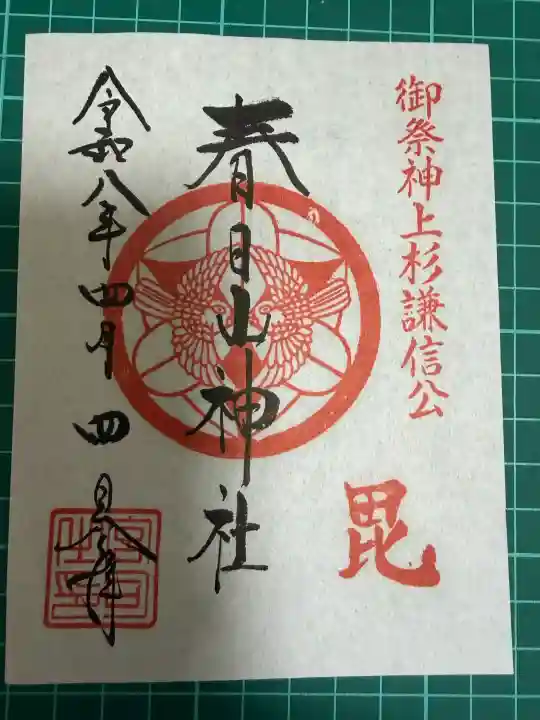 御祭神上杉謙信公
毘
春日山神社
令和八年四月四日参拝